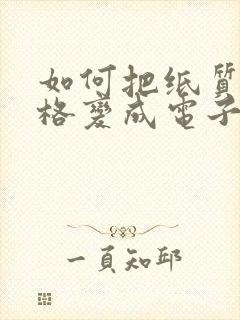 如何把纸質
格變成電子
一頁知邱